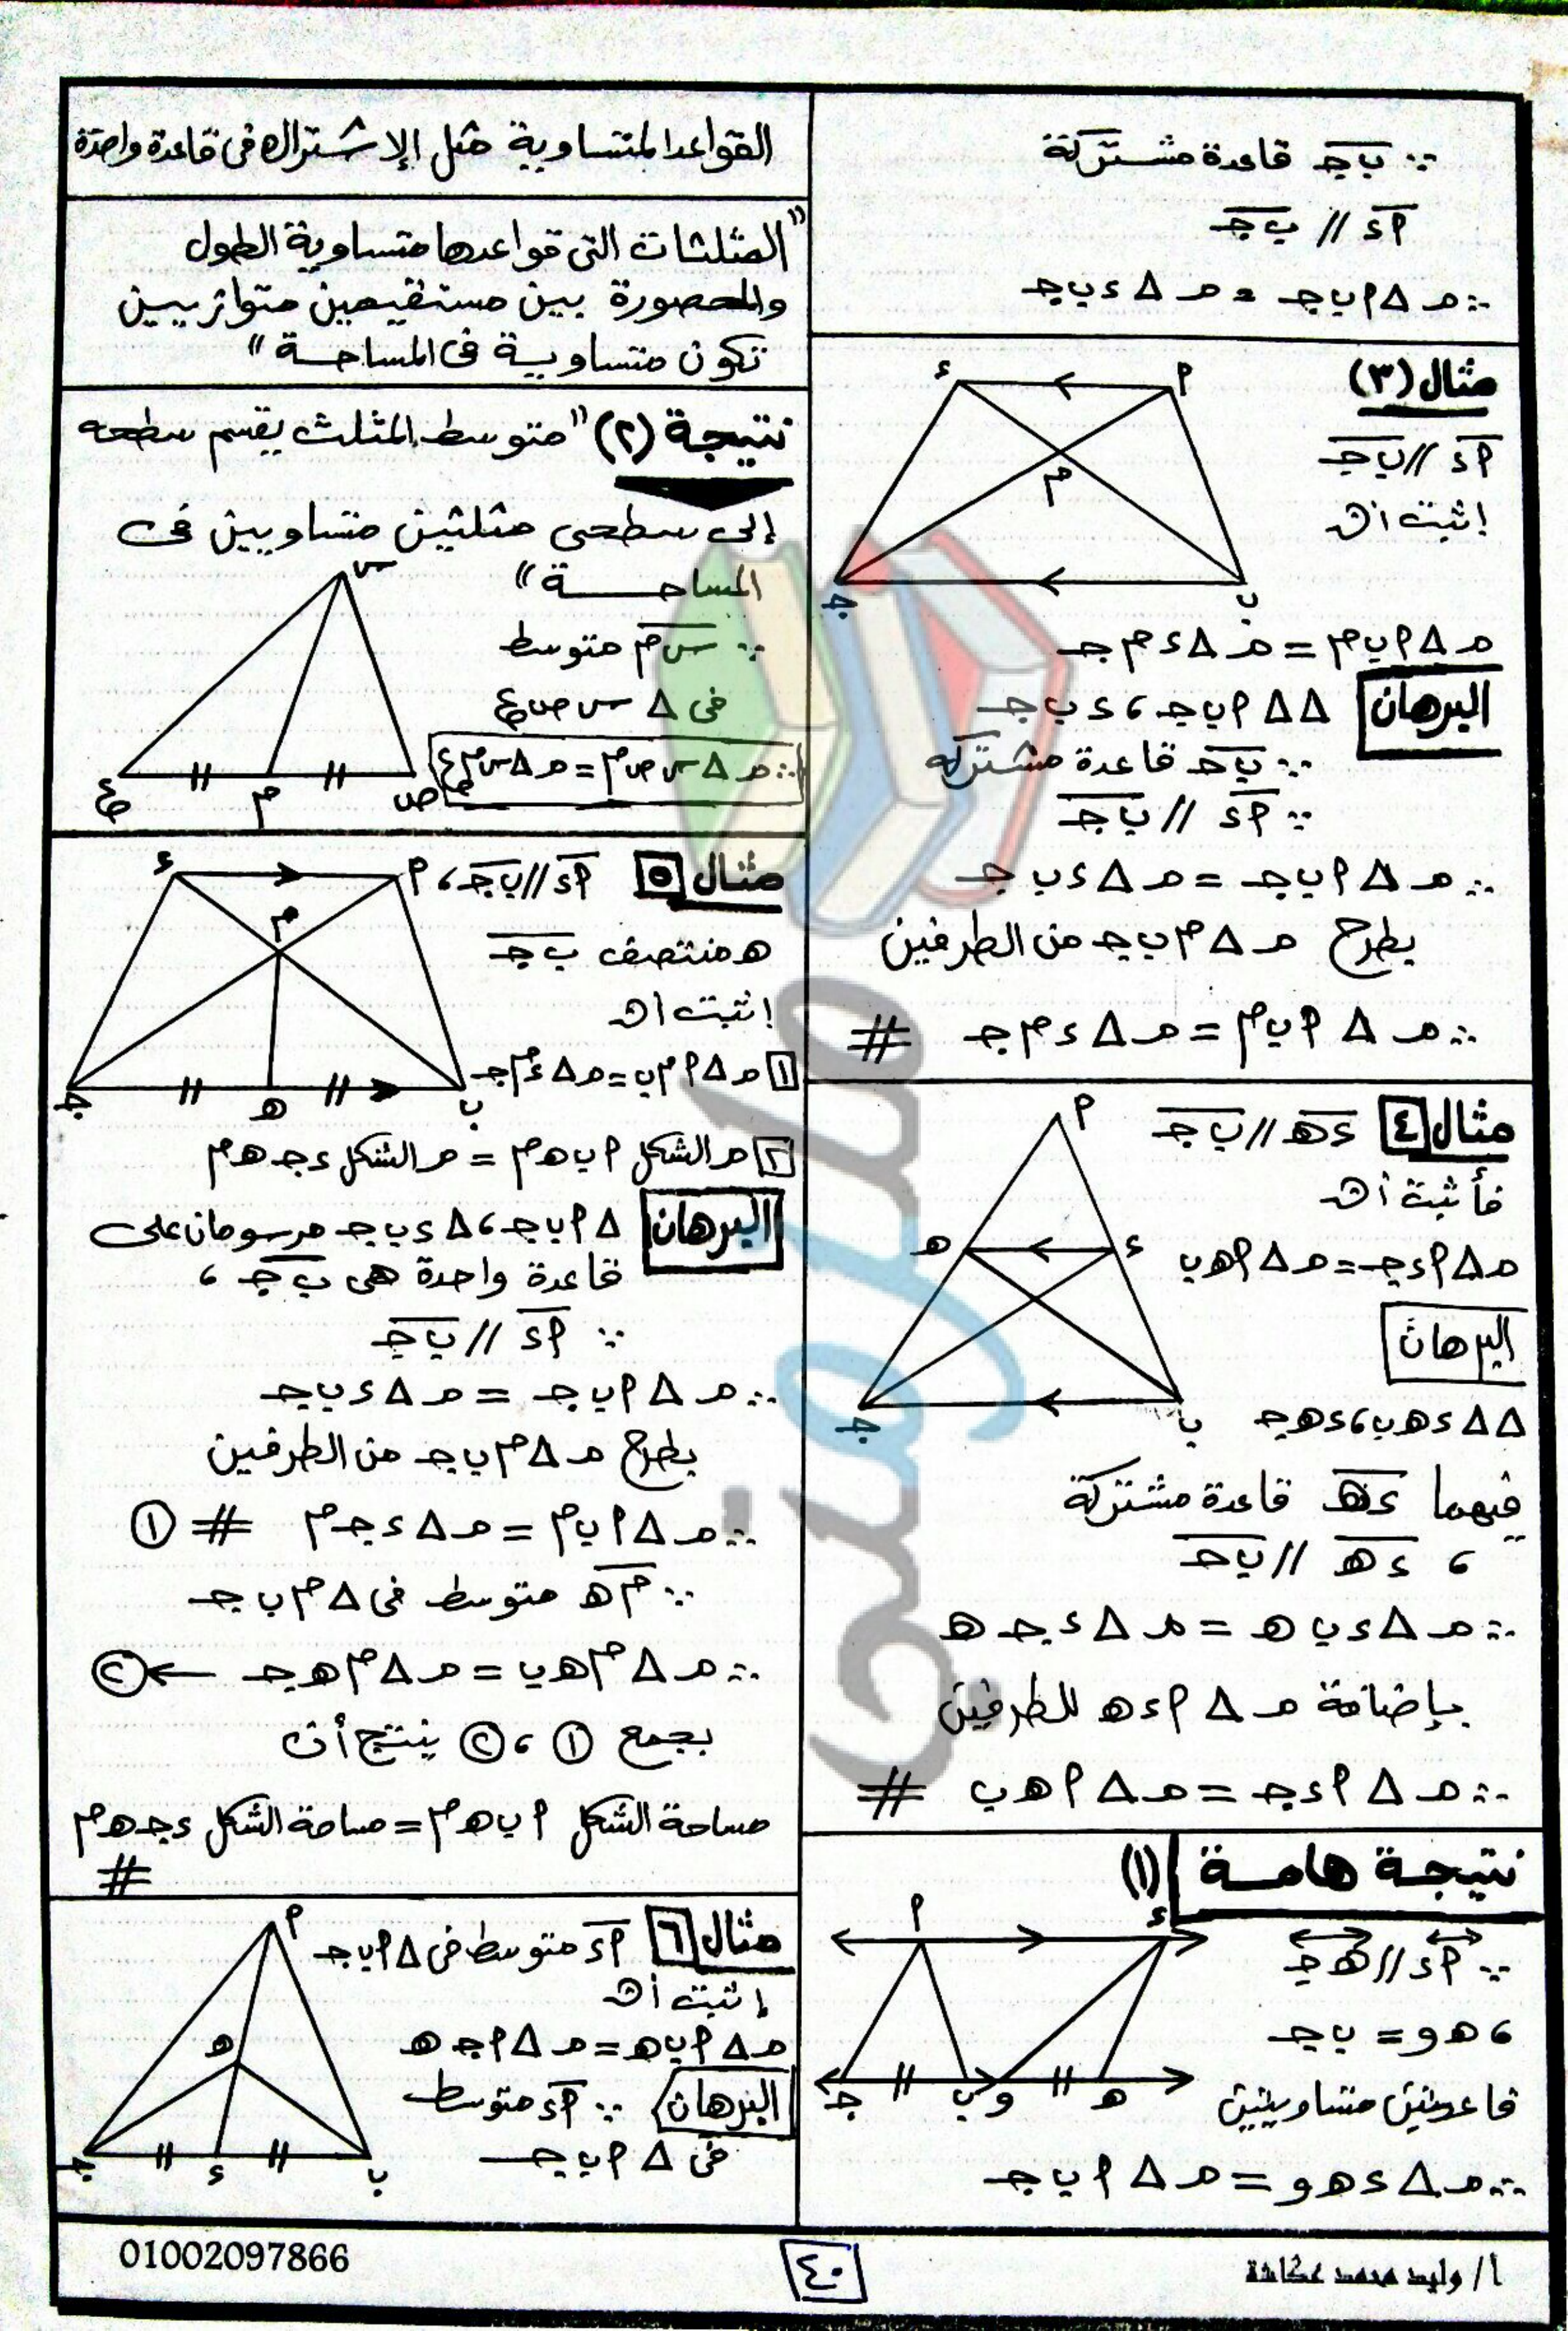 ∵ ب ج قاعدة مشتركة
أ د // ب ج
∴ م Δ أ ب ج = م Δ د ب ج
مثال (٣)
أ د // ب ج
إثبت أن
م Δ أ ب م = م Δ د م ج
البرهان
Δ Δ أ ب ج ، د ب ج
∵ ب ج قاعدة مشتركه
∵ أ د // ب ج
∴ م Δ أ ب ج = م Δ د ب ج
بطرح م Δ م ب ج من الطرفين
∴ م Δ أ ب م = م Δ د م ج #
د أ
م
ج ب
مثال ٤ د ه // ب ج
فأثبت أن
م Δ أ د ج = م Δ أ ه ب
البرهان
Δ Δ د ه ب ، د ه ج
فيهما د ه قاعدة مشتركة
، د ه // ب ج
∴ م Δ د ب ه = م Δ د ج ه
بإضافة م Δ أ د ه للطرفين
∴ م Δ أ د ج = م Δ أ ه ب #
أ
ه د
ج ب
نتيجة هامة (١)
∵ أ د // ه ج
، ه و = ب ج
قاعدتين متساويتين
∴ م Δ د ه و = م Δ أ ب ج
أ د
ج ب و ه
القواعد المتساوية مثل الإشتراك فى قاعدة واحدة
"المثلثات التى قواعدها متساوية الطول
والمحصورة بين مستقيمين متوازيين
تكون متساوية فى المساحة"
نتيجة (٢) "متوسط المثلث يقسم سطحه
إلى سطحى مثلثين متساويين فى
المساحة"
∵ س م متوسط
فى Δ س ص ع
∴ م Δ س ص م = م Δ س م ع
س
ع م ص
مثال ٥ أ د // ب ج ،
ه منتصف ب ج
إثبت أن
١ م Δ أ م ب = م Δ د م ج
٢ م الشكل أ ب ه م = م الشكل د ج ه م
البرهان Δ أ ب ج ، Δ د ب ج مرسومان على
قاعدة واحدة هى ب ج ،
∵ أ د // ب ج
∴ م Δ أ ب ج = م Δ د ب ج
بطرح م Δ م ب ج من الطرفين
∴ م Δ أ ب م = م Δ د ج م # ①
∵ م ه متوسط فى Δ م ب ج
∴ م Δ م ه ب = م Δ م ه ج ← ②
بجمع ① ، ② ينتج أن
مساحة الشكل أ ب ه م = مساحة الشكل د ج ه م
#
د أ
م
ج ه ب
مثال ٦ أ د متوسط فى Δ أ ب ج
إثبت أن
م Δ أ ب ه = م Δ أ ج ه
البرهان ∵ أ د متوسط
فى Δ أ ب ج
أ
ه
ج د ب
أ/ وليد محمد عكاشة
٤٠
01002097866